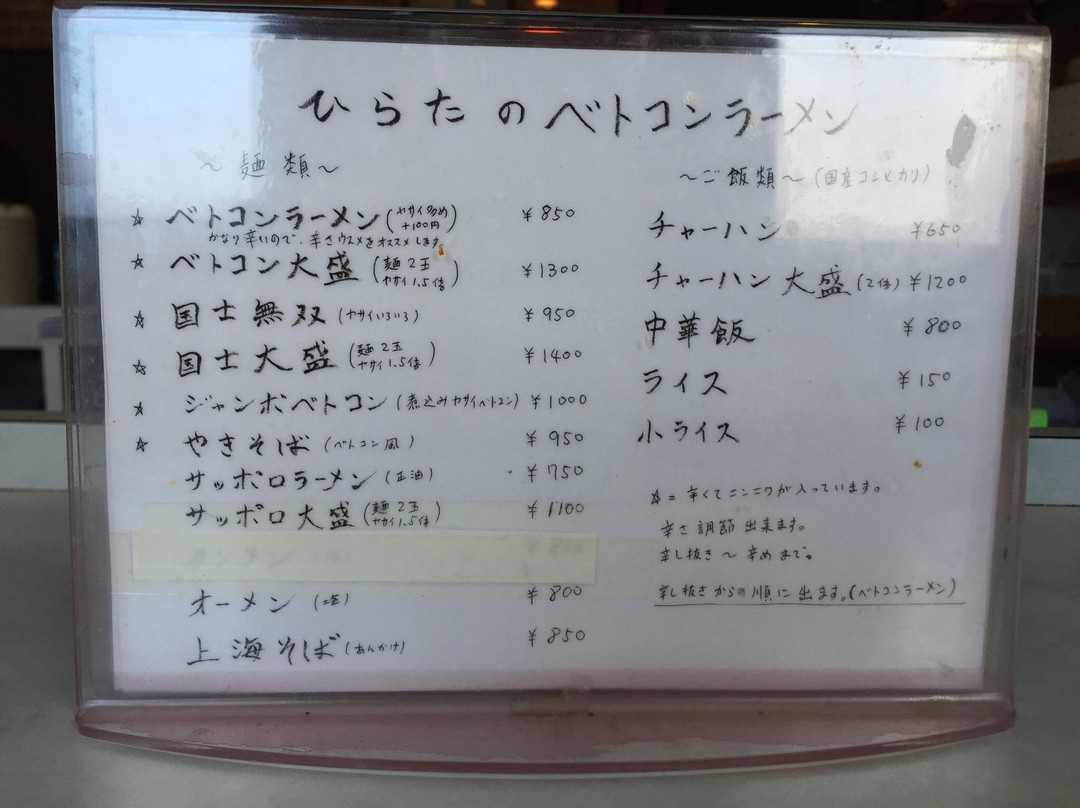 ひらたのベトコンラーメン
～麺類～
☆ ベトコンラーメン(ヤサイ多め +100円) ¥850
かなり辛いので、辛さウスメをオススメします。
☆ ベトコン大盛(麺2玉 ヤサイ1.5倍) ¥1300
☆ 国士無双(ヤサイいろいろ) ¥950
☆ 国士大盛(麺2玉 ヤサイ1.5倍) ¥1400
☆ ジャンボベトコン(煮込みヤサイベトコン) ¥1000
☆ やきそば(ベトコン風) ¥950
サッポロラーメン(正油) ¥750
サッポロ大盛(麺2玉 ヤサイ1.5倍) ¥1100
オーメン(塩) ¥800
上海そば(あんかけ) ¥850
～ご飯類～(国産コシヒカリ)
チャーハン ¥650
チャーハン大盛(2倍) ¥1200
中華飯 ¥800
ライス ¥150
小ライス ¥100
☆=辛くてニンニクが入っています。
辛さ調節出来ます。
辛し抜き～辛めまで。
辛し抜きからの順に出ます。(ベトコンラーメン)